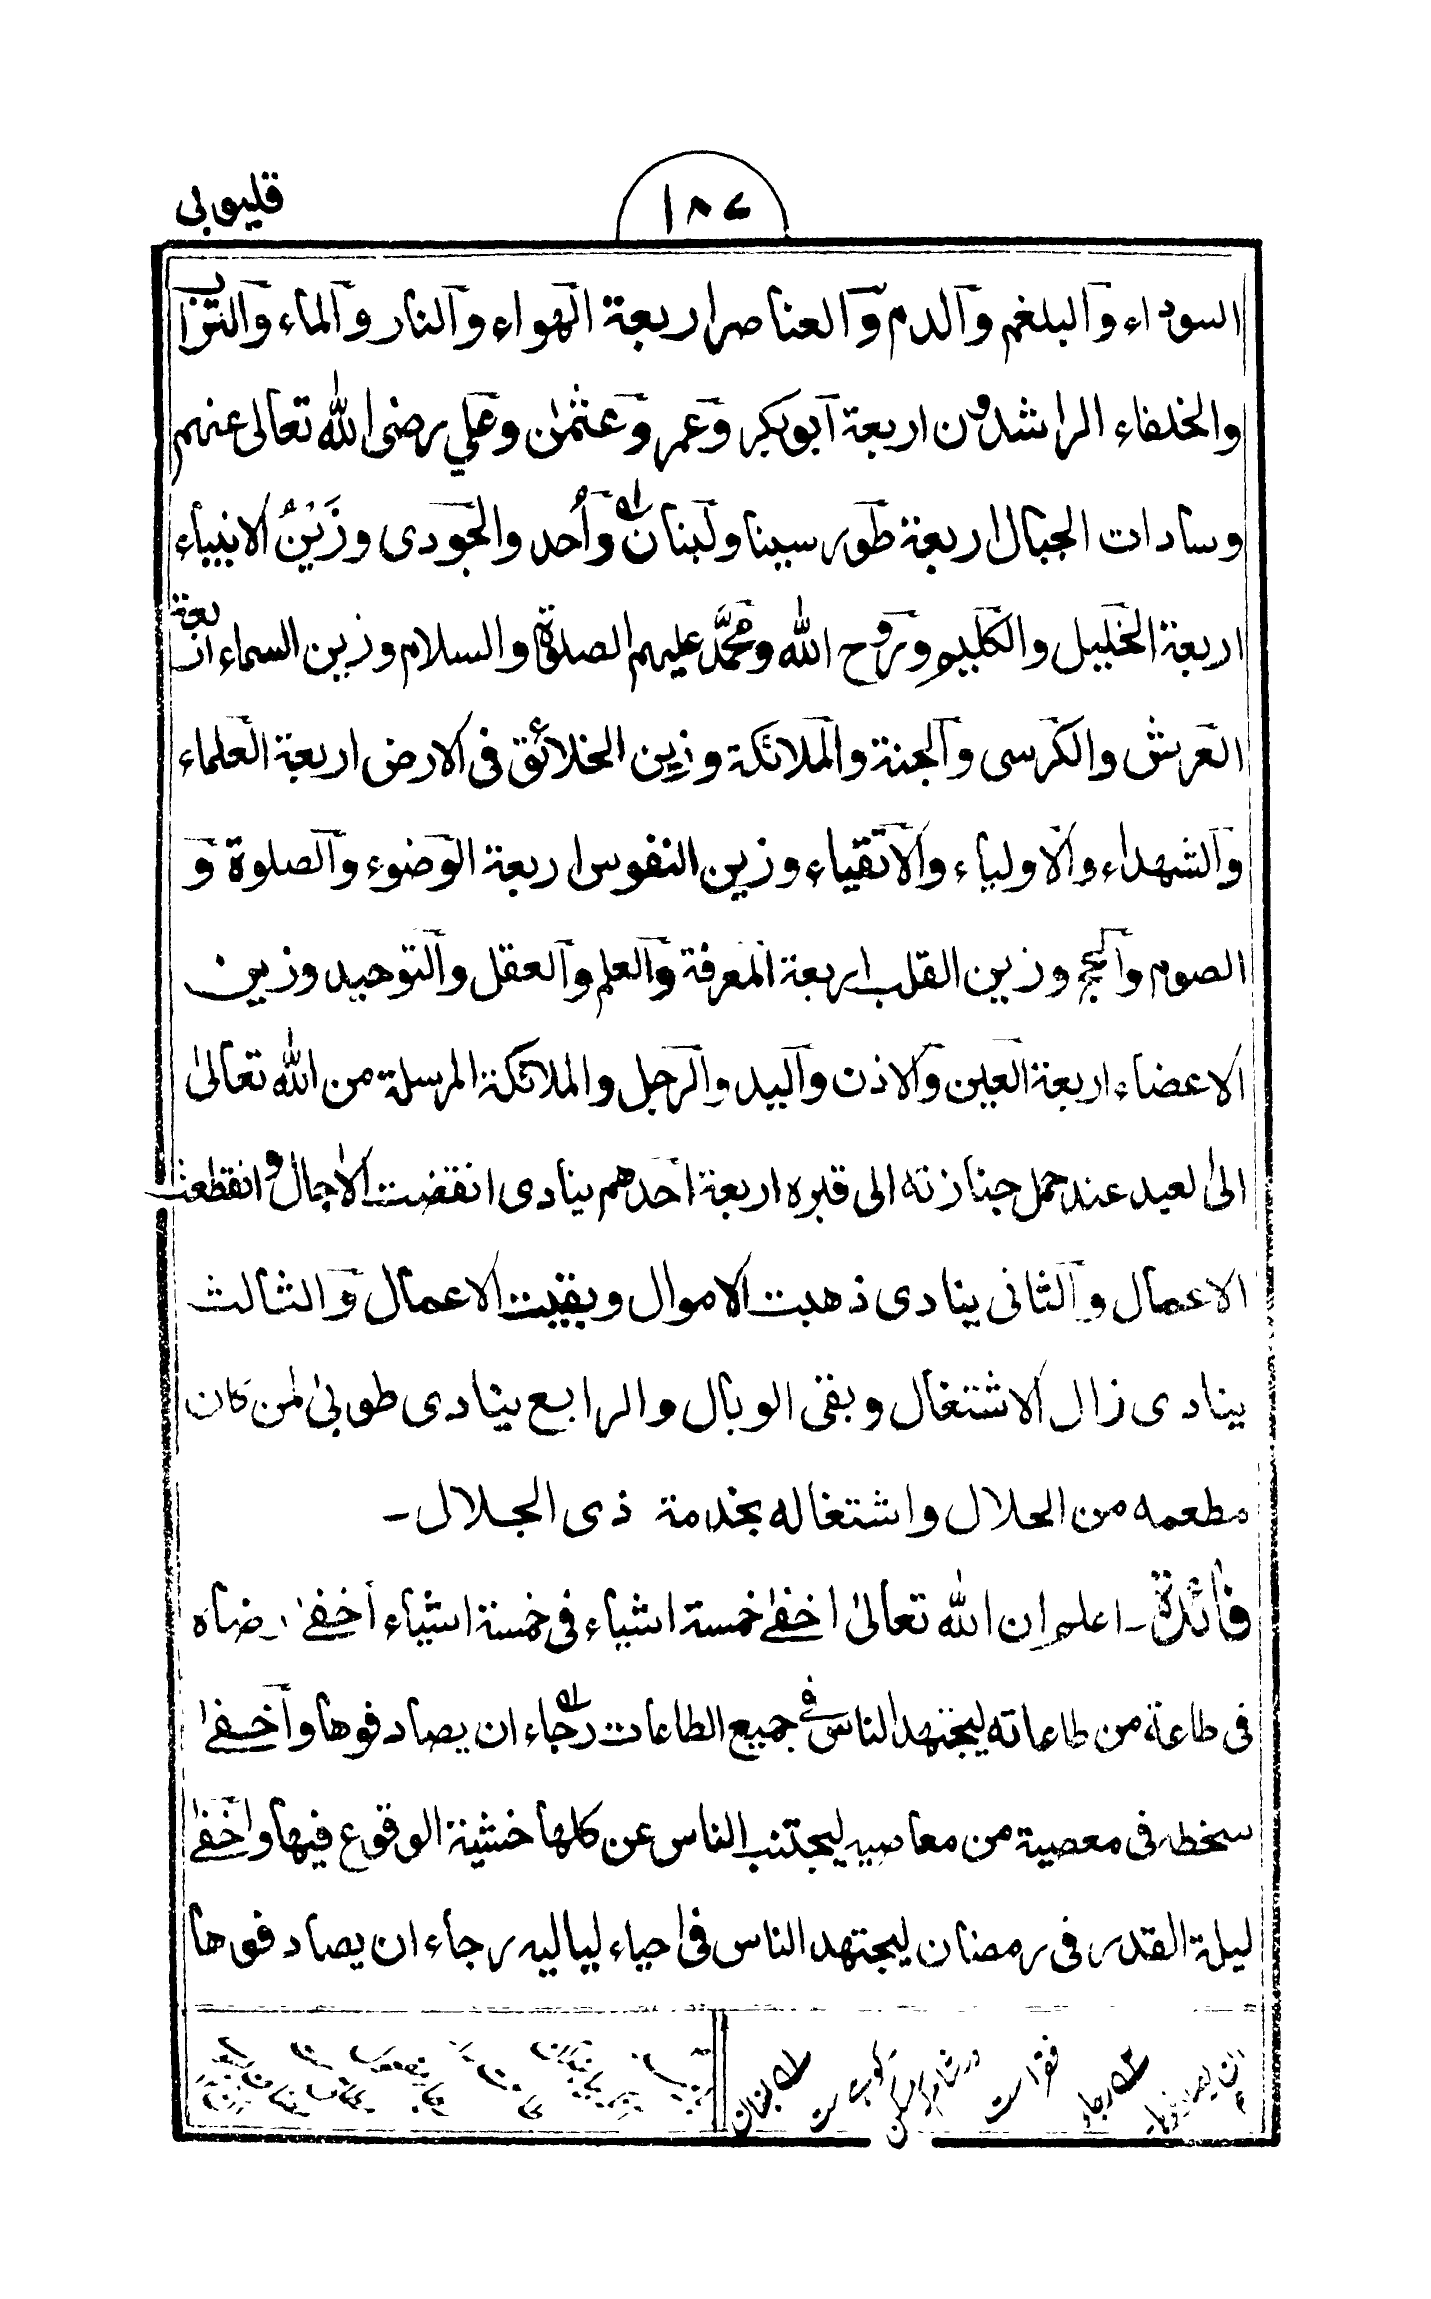 قليوبى
١٨٧
السوداء والبلغم والدم والعناصر اربعة الهواء والنار والماء والتراب
والخلفاء الراشدون اربعة ابوبكر وعمر وعثمٰن وعلي رضى الله تعالى عنهم
وسادات الجبال اربعة طور سينا ولبنان وأُحد والجودى وزَيْنُ الانبياء
اربعة الخليل والكليم وروح الله ومحمَّد عليهم الصلوة والسلام وزين السماء اربعة
العرش والكرسى والجنة والملائكة وزين الخلائق فى الارض اربعة العلماء
والشهداء والاولياء والاتقياء وزين النفوس اربعة الوضوء والصلوة و
الصوم والحج وزين القلب اربعة المعرفة والعلم والعقل والتوحيد وزين
الاعضاء اربعة العين والاذن واليد والرجل والملائكة المرسلة من الله تعالىٰ
الىٰ لعبد عند حمل جنازته الى قبره اربعة احدهم ينادى انقضت الاٰجال وانقطعت
الاعمال والثانى ينادى ذهبت الاموال وبقيت الاعمال والثالث
ينادى زال الاشتغال وبقى الوبال والرابع ينادى طوبىٰ لمن كان
مطعمه من الحلال واشتغاله بخدمة ذى الجلال ۔
فائدة ۔ اعلم ان الله تعالىٰ اخفىٰ خمسة اشياء فى خمسة اشياء أخفىٰ رضاه
فى طاعة من طاعاته ليجتهد الناس فى جميع الطاعات رجاء ان يصادفوها وأخفىٰ
سخطه فى معصية من معاصيه ليجتنب الناس عن كلها خشية الوقوع فيها واخفىٰ
ليلة القدر فى رمضان ليجتهد الناس فى احياء لياليه رجاء ان يصادفوها